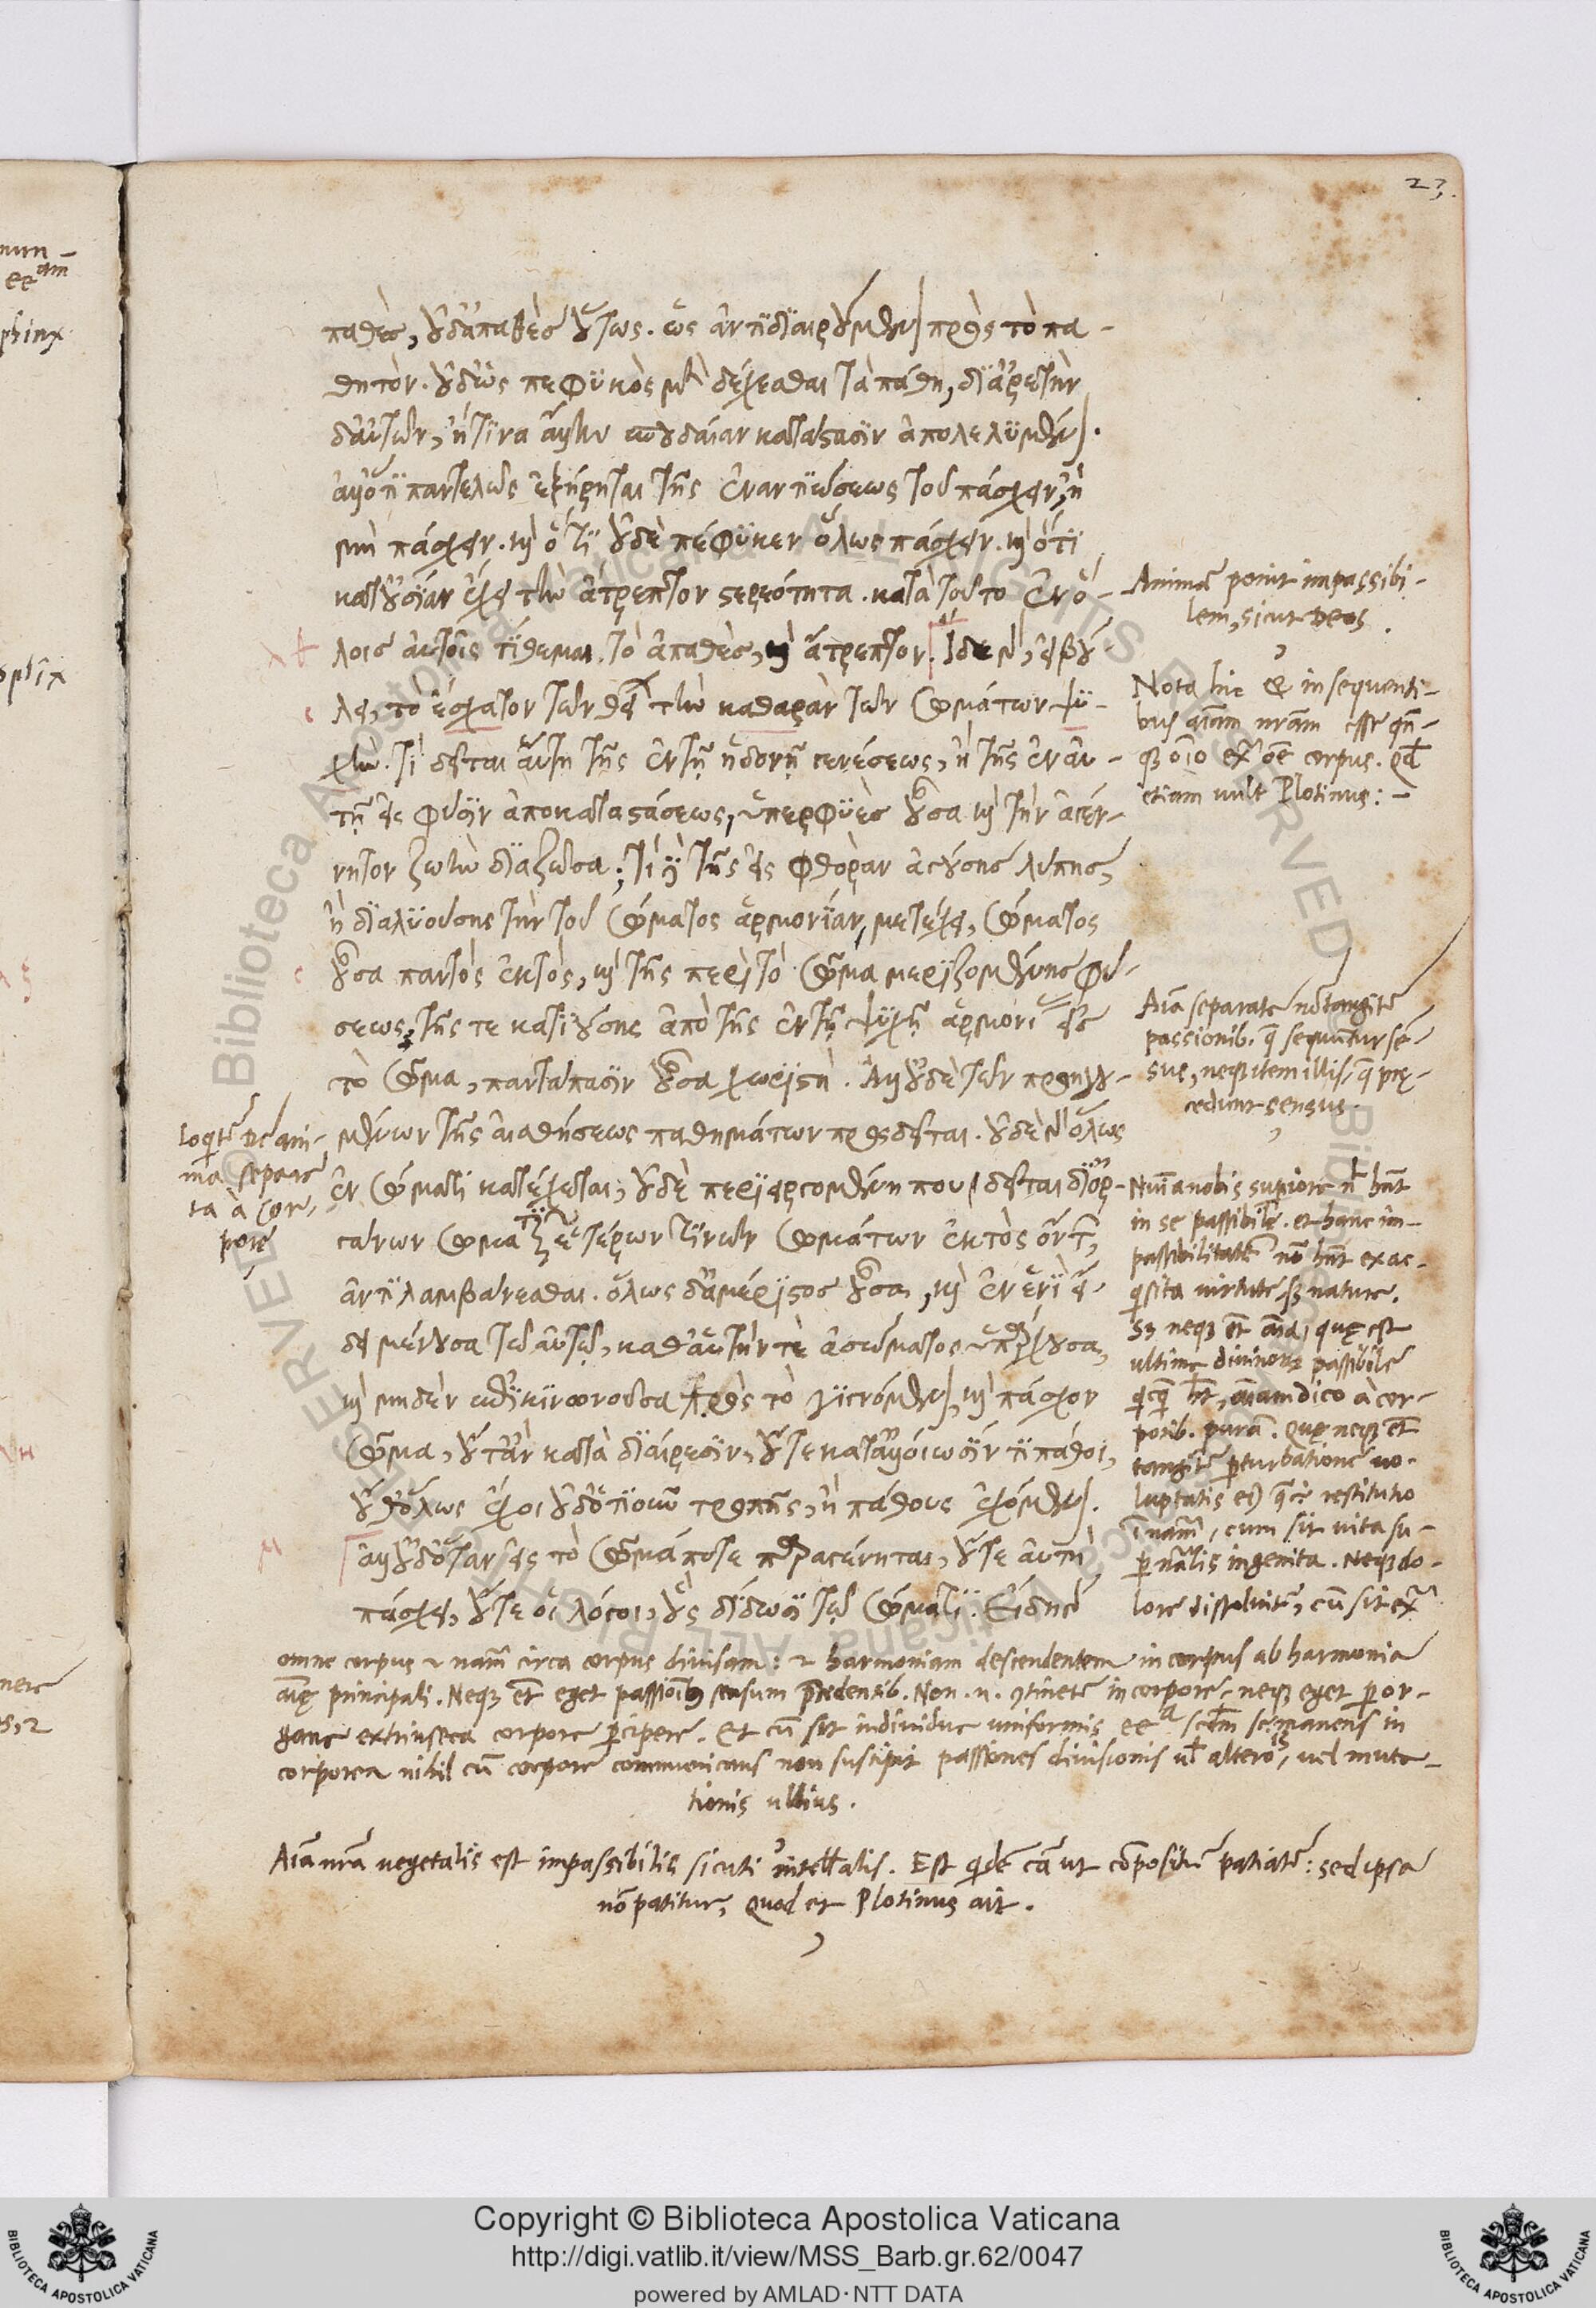 23.
παθὲσ, οὐδ' ἀπαθὲσ οὕτως. ὡς ἀντιδιαιρούμενον πρὸς τὸ πα-
θητόν. οὐδ' ὡς πεφυκὸς μὲν δέχεσθαι τὰ πάθη, δι' ἀρετὴν
δ' αὐτῶν, ἤ τινα ἄλλην σπουδαίαν κατάστασιν ἀπολελυμένον.
ἀλλ' ὅτι παντελῶς ἐξήρηται τῆς ἐναντιώσεως τοῦ πάσχειν, ἢ
μὴ πάσχειν. καὶ ὅτι οὐδὲ πέφυκεν ὅλως πάσχειν. καὶ ὅτι
κατ' οὐσίαν ἔχει τὴν ἄτρεπτον στερεότητα. κατὰ τοῦτο ἐν ὅ-
λοις αὐτοῖς τίθεμαι τὸ ἀπαθὲσ, καὶ ἄτρεπτον. Ἰδὲ γὰρ, εἰ βού-
λει, τὸ ἔσχατον τῶν θείων τὴν καθαρὰν τῶν σωμάτων ψυ-
χὴν. τί δεῖται αὕτη τῆς ἐν τῇ ἡδονῇ γενέσεως, ἢ τῆς ἐν αὐ-
τῇ εἰς φύσιν ἀποκαταστάσεως, ὑπερφυὲσ οὖσα καὶ τὴν ἀγέν-
νητον ζωὴν διαζῶσα; τί δὲ τῆς εἰς φθορὰν ἀγούσης λύπησ,
ἢ διαλυούσης τὴν τοῦ σώματος ἁρμονίαν, μετέχει, σώματος
οὖσα παντὸς ἐκτὸς, καὶ τῆς περὶ τὸ σῶμα μεριζομένης φύ-
σεως, τῆς τε κατιούσης ἀπὸ τῆς ἐν τῇ ψυχῇ ἁρμονίας εἰς
τὸ σῶμα, παντάπασιν οὖσα χωριστή. Ἀλλ' οὐδὲ τῶν προηγου-
μένων τῆς αἰσθήσεως παθημάτων προσδεῖται. οὐδὲ γὰρ ὅλως
ἐν σώματι κατέχεται, οὐδὲ περιειργομένη που, δεῖται δι' ὀρ-
γάνων σωματικῶν ἑτέρων τινῶν σωμάτων ἐκτὸς ὄντων,
ἀντιλαμβάνεσθαι. ὅλως δ' ἀμέριστος οὖσα, καὶ ἐν ἑνὶ εἴ-
δει μένουσα τῷ αὐτῷ, καθ' αὑτήν τε ἀσώματος ὑπάρχουσα,
καὶ μηδὲν ἐπικοινωνοῦσα πρὸς τὸ γιγνόμενον, καὶ πάσχον
σῶμα, οὔτ' ἂν κατὰ διαίρεσιν, οὔτε κατ' ἀλλοίωσίν τι πάθοι,
οὔθ' ὅλως ἔχοι οὐδ' ὁτιοῦν τροπῆς, ἢ πάθους ἐχόμενον.
ἀλλ' οὐδ' ὅταν εἰς τὸ σῶμά ποτε παραγένηται, οὔτε αὐτὴ
πάσχει, οὔτε οἱ λόγοι, οὓς δίδωσι τῷ σώματι. Εἴδη γὰρ
Animā ponit impassibi-
lem, sicut Deos.
Nota hic & in sequenti-
bus aīam nrām esse qn̄-
qȝ oīo ex̄ oē corpus. qd̄
etiam uult Plotinus: -
Aīa separata nō tangit̄
passionib. q̄ sequuntur sē-
sus, neqȝ item illis, q̄ prę-
cedunt sensus.
Loqit̄ de ani-
ma separa-
ta à cor-
pore
in se passibilē. et hanc im-
passibilitatē nō hn̄t ex ac-
qisita uirtute, sȝ natura.
Sȝ neqȝ ēt aīa, quę est
ultima diuinorȝ passibile
qicq̄ hēt, aīam dico à cor-
porib. purā. Quę neqȝ ēt
tangit̄ pturbatione uo-
luptatis
ī nam̄, cum sit uita su-
pnālis ingenita. Neqȝ do-
lore dissoluitur, cū sit ex̄
omne corpus & nam̄ circa corpus diuisam: & harmoniam descendentem in corpus ab harmonia
aīę principali. Neqȝ ēt eget passioībȝ sensum p̄cedentib. Non .n. ɔtinet̄ in corpore, neqȝ eget p or-
gana extrinseca corpora pcipere. Et cū sit indiuidua uniformis
corporea nihil cū corpore communicans non suscipit passiones diuisionis ul̄ alterōis, uel muta-
tionis ullius.
Aīa nrā uegetalis est impassibilis sicuti intell̄alis. Est qidē cā ut cōpositū patiat̄: sed ipsa
nō patitur, quod et Plotinus ait.
Copyright © Biblioteca Apostolica Vaticana
http://digi.vatlib.it/view/MSS_Barb.gr.62/0047
powered by AMLAD·NTT DATA